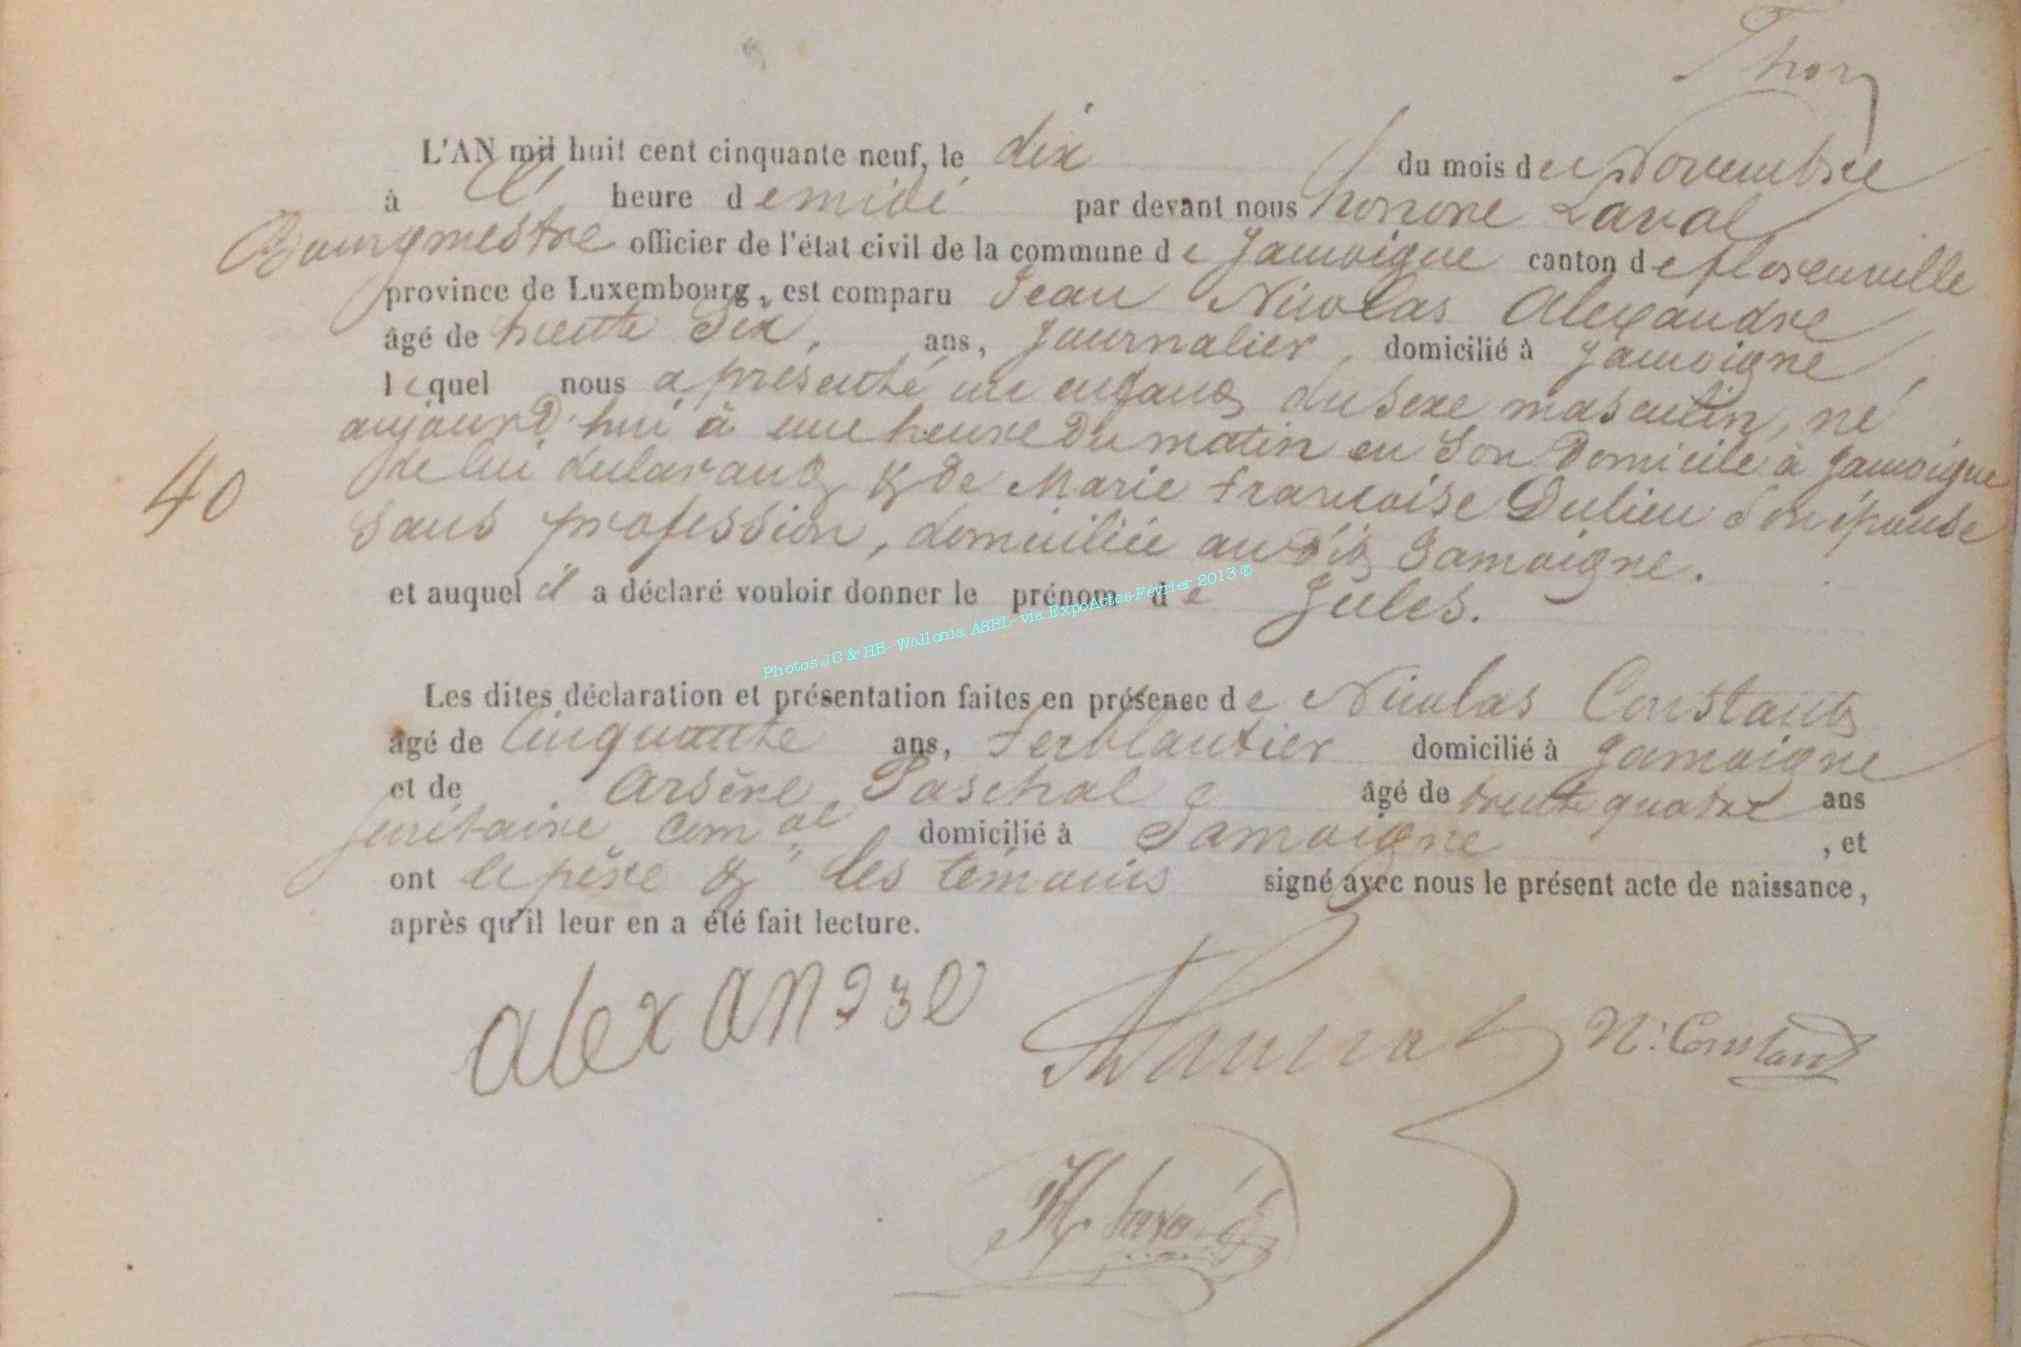 L'AN mil huit cent cinquante neuf, le dix du mois de Novembre
à l' heure de midi par devant nous honoré Laval
Bourgmestre officier de l'état civil de la commune de Jamoigne canton de florenville
province de Luxembourg, est comparu Jean Nicolas Alexandre
âgé de trente Six, ans, journalier, domicilié à Jamoigne,
lequel nous a présenté un enfant du sexe masculin, né
aujourd'hui à une heure du matin en son domicile à Jamoigne
de lui déclarant & de Marie françoise Dulieu son épouse
sans profession, domiciliée au dit Jamoigne.
et auquel il a déclaré vouloir donner le prénom de Jules.
Photos JC & HB- Wallonia ASBL- via ExpoActes-Février 2013 ©
40
Les dites déclaration et présentation faites en présence de Nicolas Constant
âgé de cinquante ans, ferblantier domicilié à Jamoigne
et de Arsène Paschal âgé de trente quatre ans
secrétaire com al domicilié à Jamoigne, et
ont le père & les témoins signé avec nous le présent acte de naissance,
après qu'il leur en a été fait lecture.
alexandre
N. Constant
H. Laval